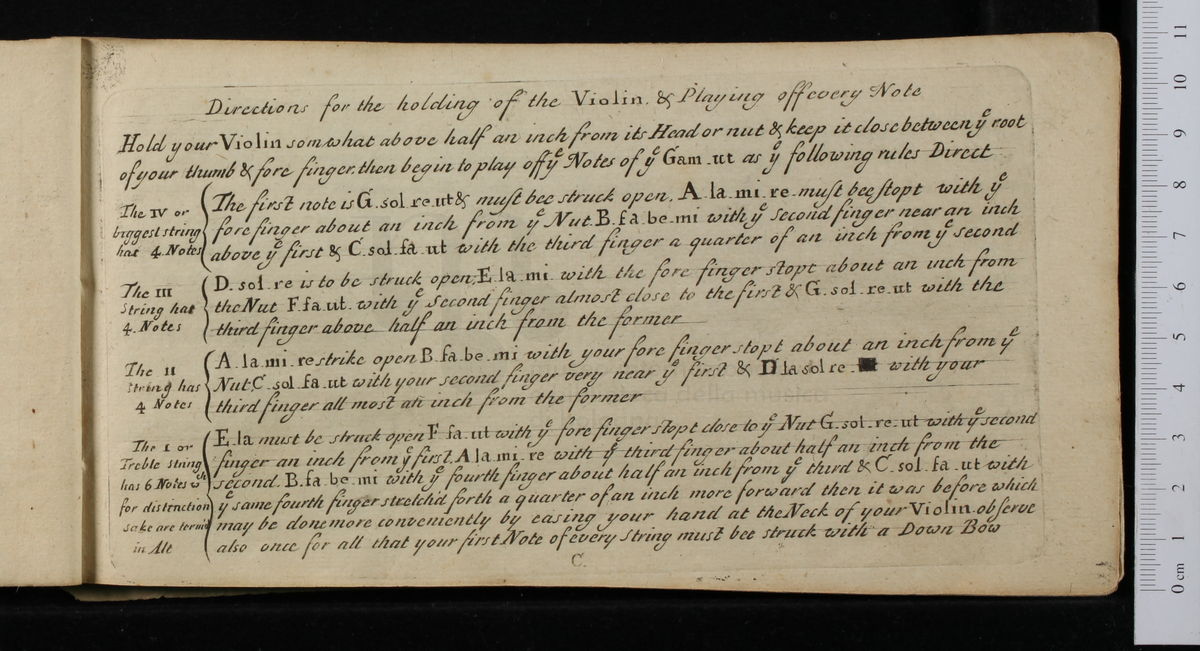 Directions for the holding of the Violin. & Playing off every Note
Hold your Violin somwhat above half an inch from its Head or nut & keep it close between yᵉ root
of your thumb & fore finger, then begin to play off yᵉ Notes of yᵉ Gam-ut as yᵉ following rules Direct
The IV or
biggest string
hat 4 Notes
The first note is G.sol.re.ut & must bee struck open, A.la.mi.re. must bee stopt with yᵉ
fore finger about an inch from yᵉ Nut. B.fa.be.mi with yᵉ second finger near an inch
above yᵉ first & C.sol.fa.ut with the third finger a quarter of an inch from yᵉ second
The III
String hat
4. Notes
D.sol.re is to be struck open, E.la.mi. with the fore finger stopt about an inch from
the Nut F.fa.ut. with yᵉ second finger almost close to the first & G.sol.re.ut with the
third finger above half an inch from the former
The II
String has
4 Notes
A.la.mi.re strike open B.fa.be.mi with your fore finger stopt about an inch from yᵉ
Nut C.sol.fa.ut with your second finger very near yᵉ first & D la sol re with your
third finger all most an inch from the former
The I or
Treble string
has 6 Notes wᶜʰ
for distinction
sake are termd
in Alt
E.la must be struck open F.fa.ut with yᵉ fore finger stopt close to yᵉ Nut G.sol.re.ut with yᵉ second
finger an inch from yᵉ first, A la.mi.re with yᵉ third finger about half an inch from the
second. B.fa.be.mi with yᵉ fourth finger about half an inch from yᵉ third & C.sol.fa.ut with
yᵉ same fourth finger stretch'd forth a quarter of an inch more forward then it was before which
may be done more conveniently by easing your hand at the Neck of your Violin. observe
also once for all that your first Note of every string must bee struck with a Down Bow
C.
0 cm 1 2 3 4 5 6 7 8 9 10 11